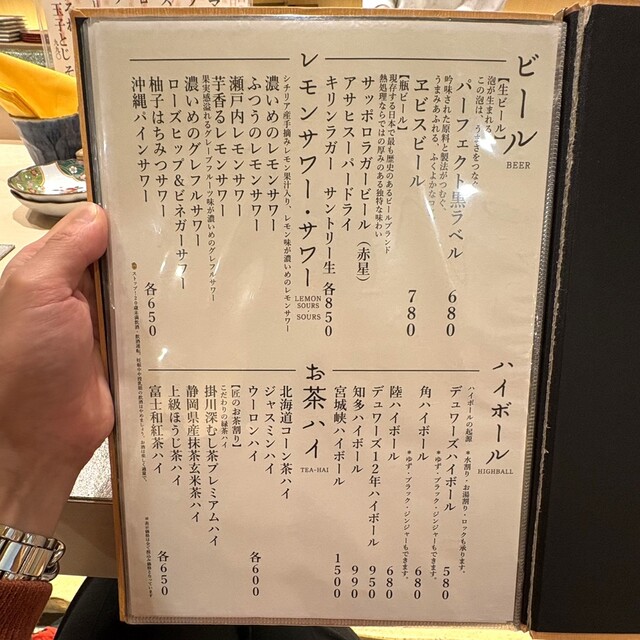 ビール
BEER
【生ビール】
泡が生まれる
この泡は、うまさをつなぐ
パーフェクト黒ラベル 680
吟味された原料と製法がつむぐ、
うまみあふれる、ふくよかなコ
ヱビスビール 780
【瓶ビール】
現存する日本で最も歴史のあるビールブランド
熱処理ならではの厚みのある独特な味わい
サッポロラガービール（赤星）
アサヒスーパードライ
キリンラガー サントリー生 各850
レモンサワー・サワー
LEMON
SOURS
・
SOURS
シチリア産手摘みレモン果汁入り、レモン味が濃いめのレモンサワー
濃いめのレモンサワー
ふつうのレモンサワー
瀬戸内レモンサワー
芋香るレモンサワー
果実感溢れるグレープフルーツ味が濃いめのグレフルサワー
濃いめのグレフルサワー
ローズヒップ&ビネガーサワー
柚子はちみつサワー
沖縄パインサワー 各650
ハイボール
HIGHBALL
ハイボールの起源 *水割り・お湯割り・ロックも承ります。
デュワーズハイボール 580
*ゆず・ブラック・ジンジャーもできます。
角ハイボール 680
*ゆず・ブラック・ジンジャーもできます。
陸ハイボール 680
デュワーズ12年ハイボール 950
知多ハイボール 990
宮城峡ハイボール 1500
お茶ハイ
TEA-HAI
北海道コーン茶ハイ
ジャスミンハイ
ウーロンハイ 各600
【匠のお茶割り】
こだわりの緑茶ハイ
掛川深むし茶プレミアムハイ
静岡県産抹茶玄米茶ハイ
上級ほうじ茶ハイ
富士和紅茶ハイ 各650
玉子とじ